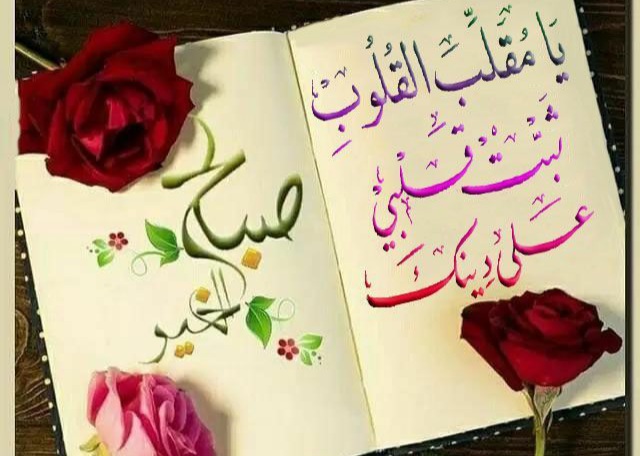 يَا مُقَلِّبَ القُلُوبِ
ثَبِّتْ قَلْبِي
عَلَى دِينِكَ
صباح
الخير